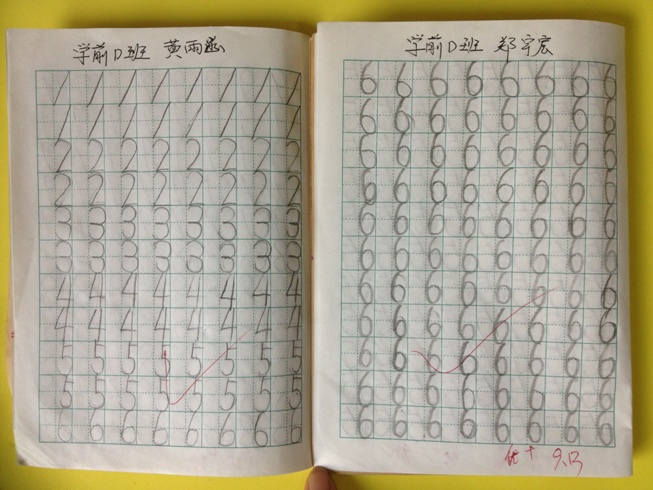 学前D班 黄雨函
1 1 1 1 1 1 1 1
1 1 1 1 1 1 1 1
2 2 2 2 2 2 2 2
2 2 2 2 2 2 2 2
3 3 3 3 3 3 3 3
3 3 3 3 3 3 3 3
4 4 4 4 4 4 4 4
4 4 4 4 4 4 4 4
5 5 5 5 5 5 5 5
5 5 5 5 5 5 5 5
6 6 6 6 6 6 6 6
学前D班 郑宇宏
6 6 6 6 6 6 6 6
6 6 6 6 6 6 6 6
6 6 6 6 6 6 6 6
6 6 6 6 6 6 6 6
6 6 6 6 6 6 6 6
6 6 6 6 6 6 6 6
6 6 6 6 6 6 6 6
6 6 6 6 6 6 6 6
6 6 6 6 6 6 6 6
6 6 6 6 6 6 6 6
6 6 6 6 6 6 6 6
优+